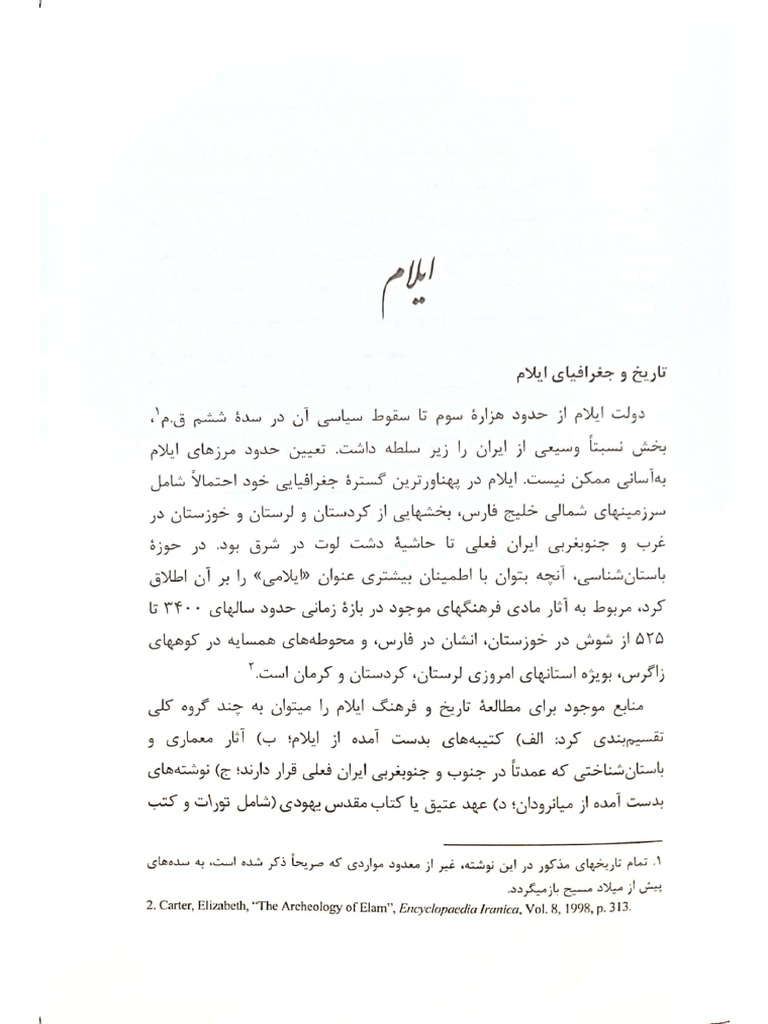 ایلام
تاریخ و جغرافیای ایلام
دولت ایلام از حدود هزارهٔ سوم تا سقوط سیاسی آن در سدهٔ ششم ق.م۱،
بخش نسبتاً وسیعی از ایران را زیر سلطه داشت. تعیین حدود مرزهای ایلام
به‌آسانی ممکن نیست. ایلام در پهناورترین گسترهٔ جغرافیایی خود احتمالاً شامل
سرزمینهای شمالی خلیج فارس، بخشهایی از کردستان و لرستان و خوزستان در
غرب و جنوبغربی ایران فعلی تا حاشیهٔ دشت لوت در شرق بود. در حوزهٔ
باستان‌شناسی، آنچه بتوان با اطمینان بیشتری عنوان «ایلامی» را بر آن اطلاق
کرد، مربوط به آثار مادی فرهنگهای موجود در بازهٔ زمانی حدود سالهای ۳۴۰۰ تا
۵۲۵ از شوش در خوزستان، انشان در فارس، و محوطه‌های همسایه در کوههای
زاگرس، بویژه استانهای امروزی لرستان، کردستان و کرمان است.۲
منابع موجود برای مطالعهٔ تاریخ و فرهنگ ایلام را میتوان به چند گروه کلی
تقسیم‌بندی کرد: الف) کتیبه‌های بدست آمده از ایلام؛ ب) آثار معماری و
باستان‌شناختی که عمدتاً در جنوب و جنوبغربی ایران فعلی قرار دارند؛ ج) نوشته‌های
بدست آمده از میانرودان؛ د) عهد عتیق یا کتاب مقدس یهودی (شامل تورات و کتب
۱. تمام تاریخهای مذکور در این نوشته، غیر از معدود مواردی که صریحاً ذکر شده است، به سده‌های
پیش از میلاد مسیح بازمیگردد.
2. Carter, Elizabeth, “The Archeology of Elam”, Encyclopaedia Iranica, Vol. 8, 1998, p. 313.